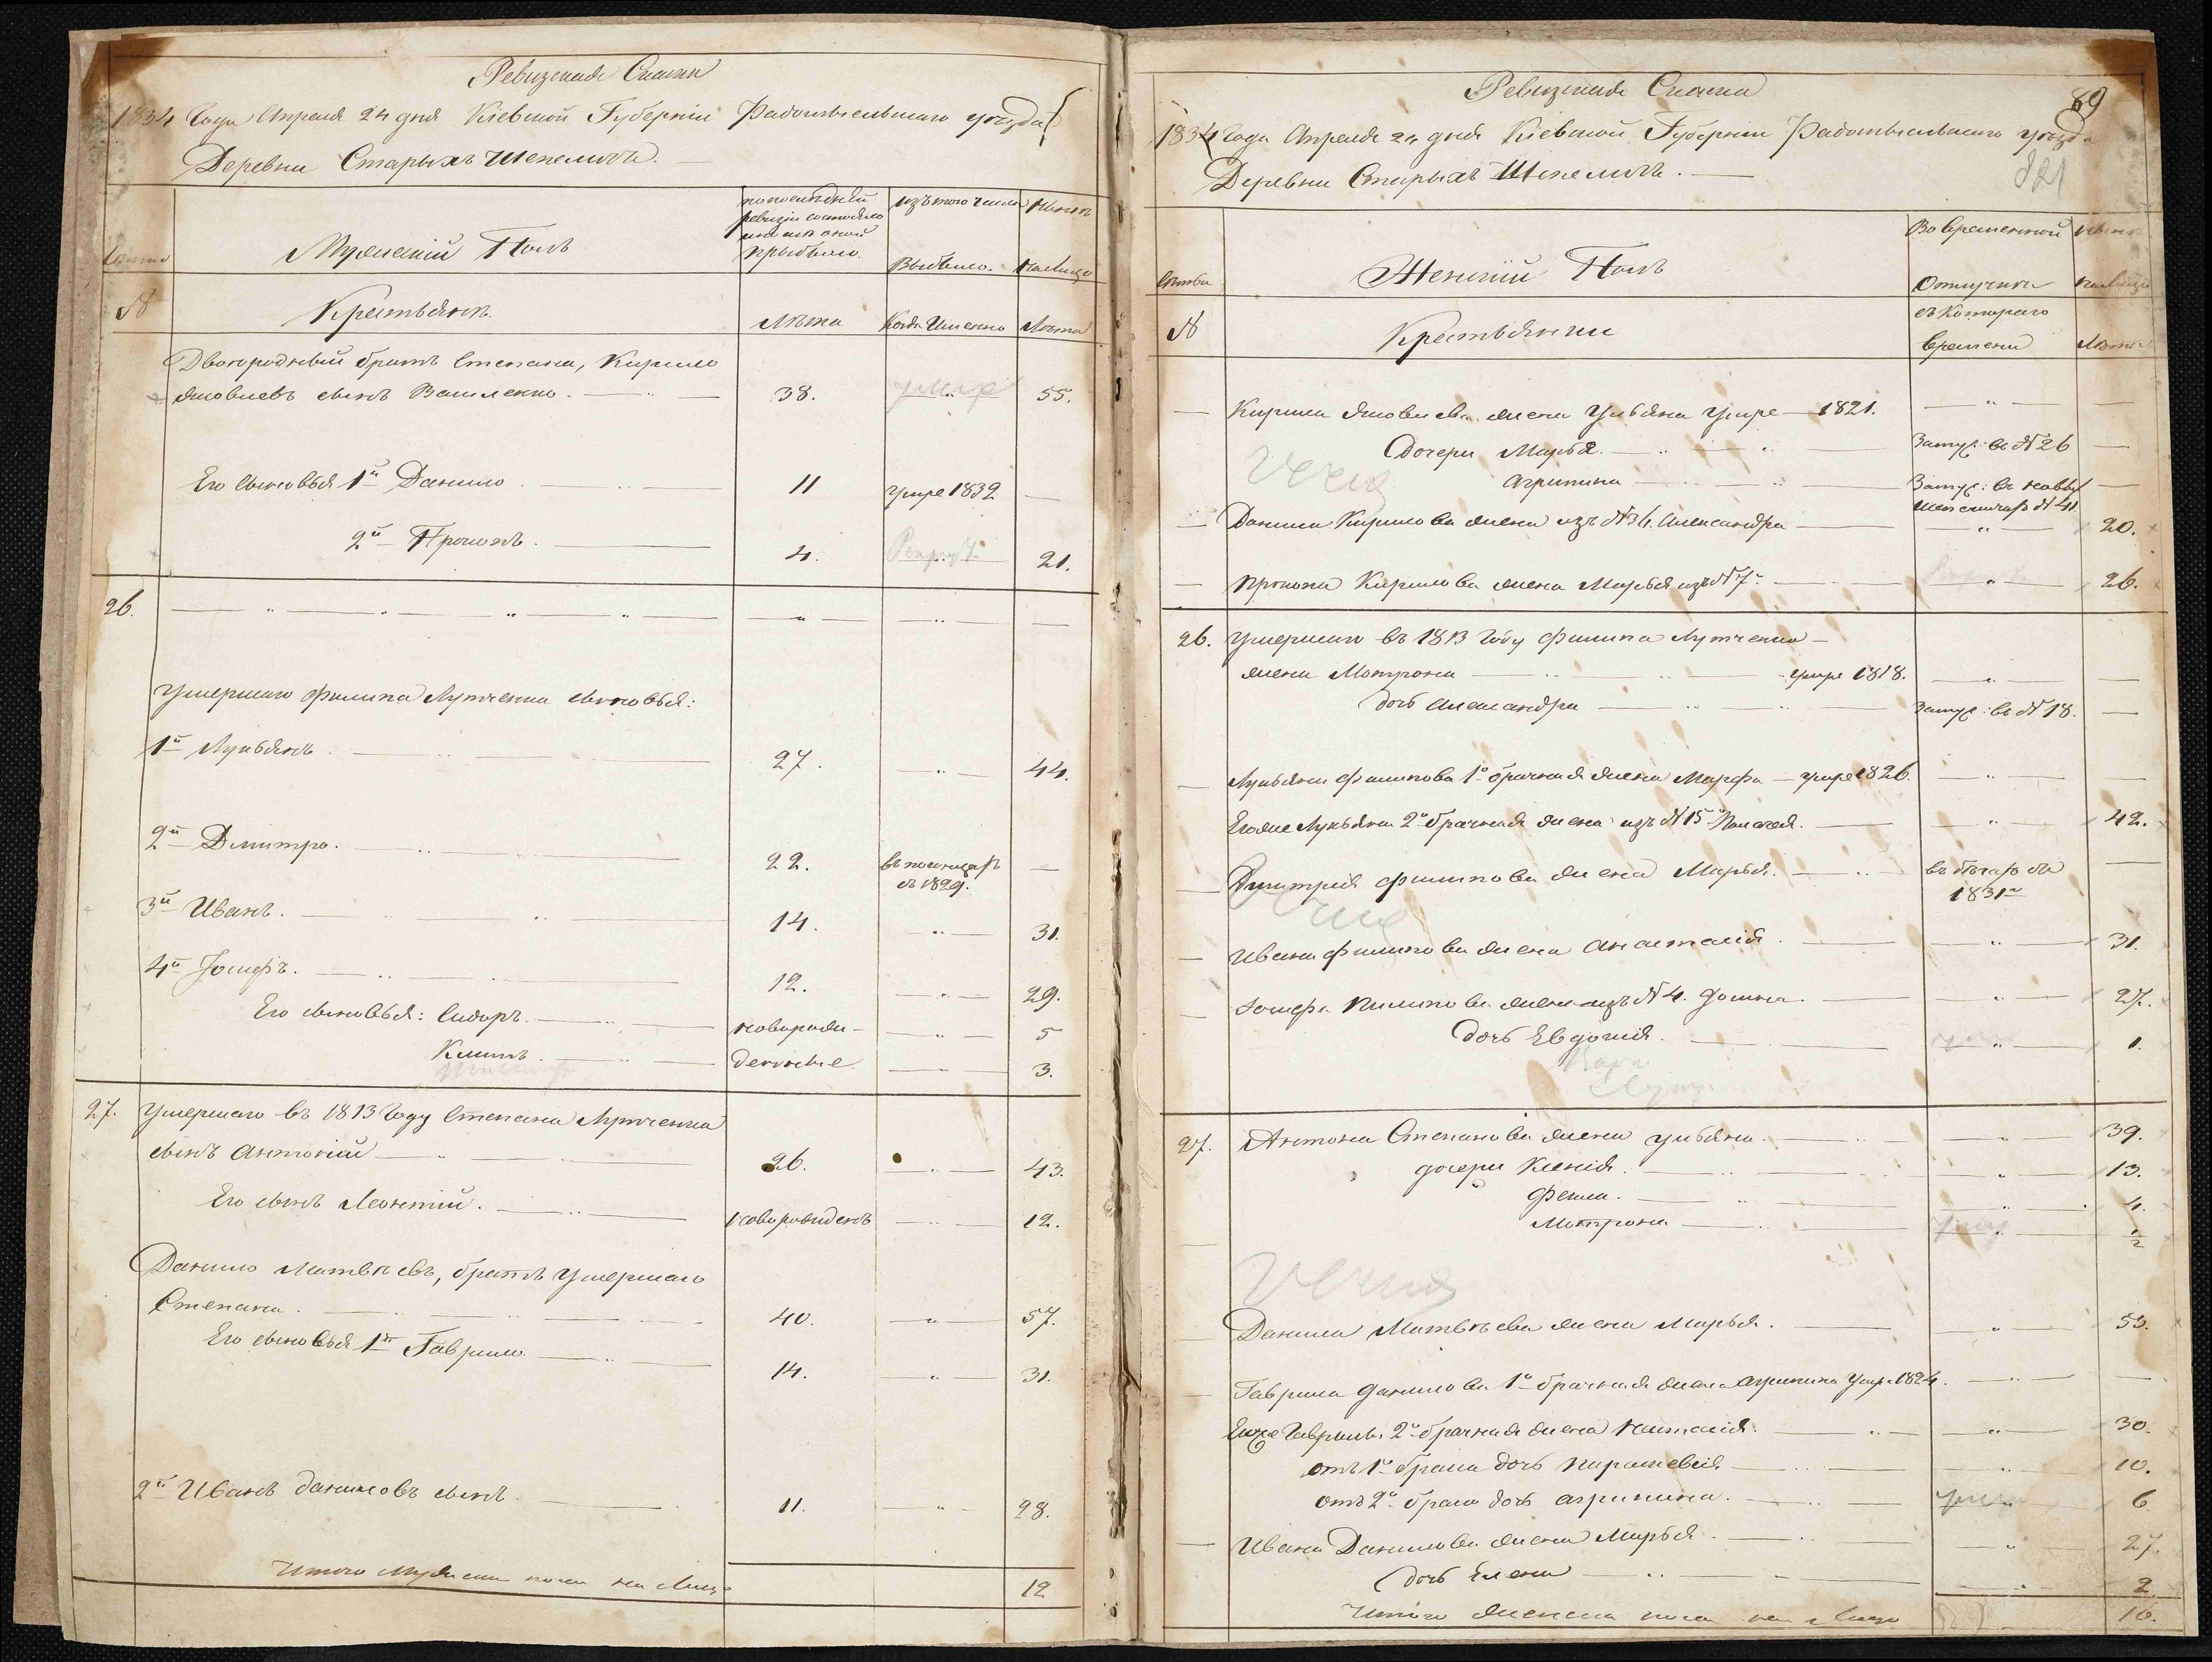 Ревизская Сказка
1834 Года Апреля 24 дня Кіевской Губерніи Радомысльскаго уѣзда
Деревни Старыхъ Шепеличъ.
Мужескій Полъ
по последней
ревизіи состояло
и после оной
прыбыло.
изъ того числа
Выбыло.
Нынѣ
на лицо
№
Крестьянѣ.
Лѣта
Когда Именно
Лѣта
Двоюродный братъ Степана, Кирило
Яковлевъ сынъ Василенко. 38. умер 55.
Его сыновья 1й Данило 11 умре 1832
2й Прокопъ. 4. Рекрут 21.
26.
Умершаго Филипа Лутченка сыновья:
1й Лукьянъ 27. 44.
2й Дмитро. 22.
съ 1829.
3й Иванъ. 14. 31.
4й Іосифъ. 12. 29.
Его сыновья: Сидоръ. новорож- 5
Климъ. денные. 3.
27. Умершаго въ 1813 Году Степана Лутченка
сынъ Антоній 26. 43.
Его сынъ Леонтій. новорожденъ 12.
Данило Матвѣевъ, братъ умершаго
Степана. 40. 57.
Его сыновья 1й Гаврило 14. 31.
2й Иванъ Даниловъ сынъ. 11. 28.
Итого Мужеска пола на Лицо 12
Ревизская Сказка
89
1834 Года Апреля 24 дня Кіевской Губерніи Радомысльскаго уѣзда
821
Деревни Старыхъ Шепеличъ.
Семьи
Женскій Полъ
Во временной
Отлучкѣ
Нынѣ
на лицо
№
Крестьянки
съ Котораго
времени
Лѣта
Кирила Яковлева жена Ульяна умре 1821.
Дочери Марья. Замуж: въ № 26
Агрипина Замуж: въ новых
Шепеличахъ № 41
Данила Кирилова жена изъ № 34. Александра 20.
Прокопа Кирилова жена Марья изъ № 7. 26.
26. Умершаго въ 1813 Году Филипа Лутченка
жена Мотрона умре 1818.
дочь Александра Замуж: въ № 18.
Лукьяна Филипова 1о брачная жена Марфа умре 1826.
Егоже Лукьяна 2о брачная жена изъ № 15 42.
Дмитрія Филипова жена Марья. въ бегах съ
1831го
Ивана Филипова жена Анастасія. 31.
Іосифа Филипова жена изъ № 4. 27.
дочь Евдокія. 1.
27. Антона Степанова жена Ульяна. 39.
дочери Ксенія. 13.
Фекла. 4.
Мотрона 1/2
Данила Матвѣева жена Марья. 53.
Гаврила Данилова 1о брачная жена Агрипина умре 1824.
Егоже Гаврила 2о брачная жена Наталія. 30.
отъ 1го брака дочь Параскевія 10.
отъ 2го брака дочь Агрипина. 6.
Ивана Данилова жена Марья. 27.
дочь Елена 2
Итого Женска пола на Лицо 16.